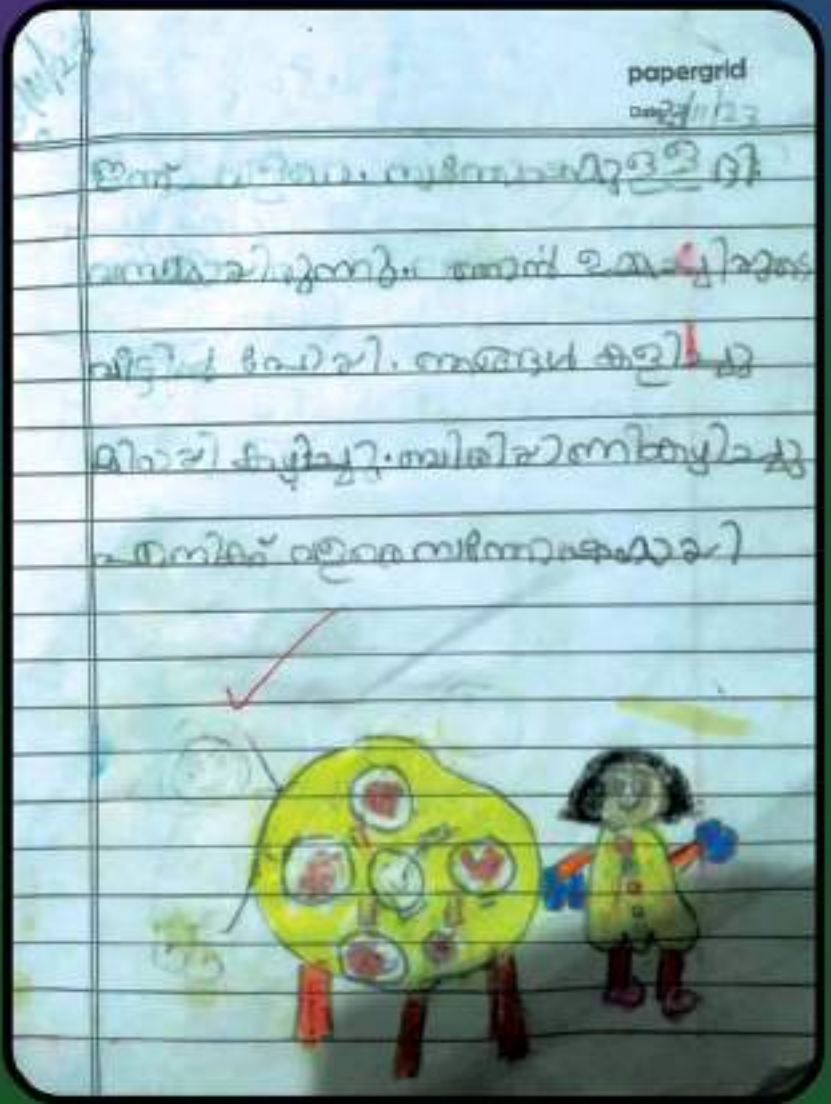 papergrid
Date: 27/11/23
ഇന്ന് വളരെ സന്തോഷമുള്ള ദി
വസമായിരുന്നു. ഞാൻ ഉമ്മച്ചിയുടെ
വീട്ടിൽ പോയി. ഞങ്ങൾ കളിച്ചു
മിഠായി കഴിച്ചു. ബിരിയാണി കഴിച്ചു
എനിക്ക് വളരെ സന്തോഷമായി